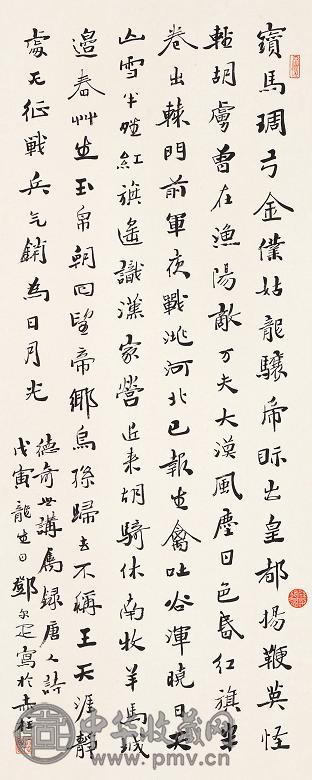 寶馬琱弓金僕姑龍驤虎眎出皇都揚鞭莫怪
輕胡虜曾在漁陽敵万夫大漠風塵日色昏红旗半
卷出轅門前軍夜戰洮河北已報生禽吐谷渾曉日天
山雪半晴紅旗遙識漢家營近来胡騎休南牧羊馬城
邊春艸生玉帛朝回望帝鄉烏孫歸去不稱王天涯靜
處无征戰兵气銷為日月光
德奇世講屬録唐人詩
戊寅龍生日鄧尔疋寫於赤柱
中华收藏网